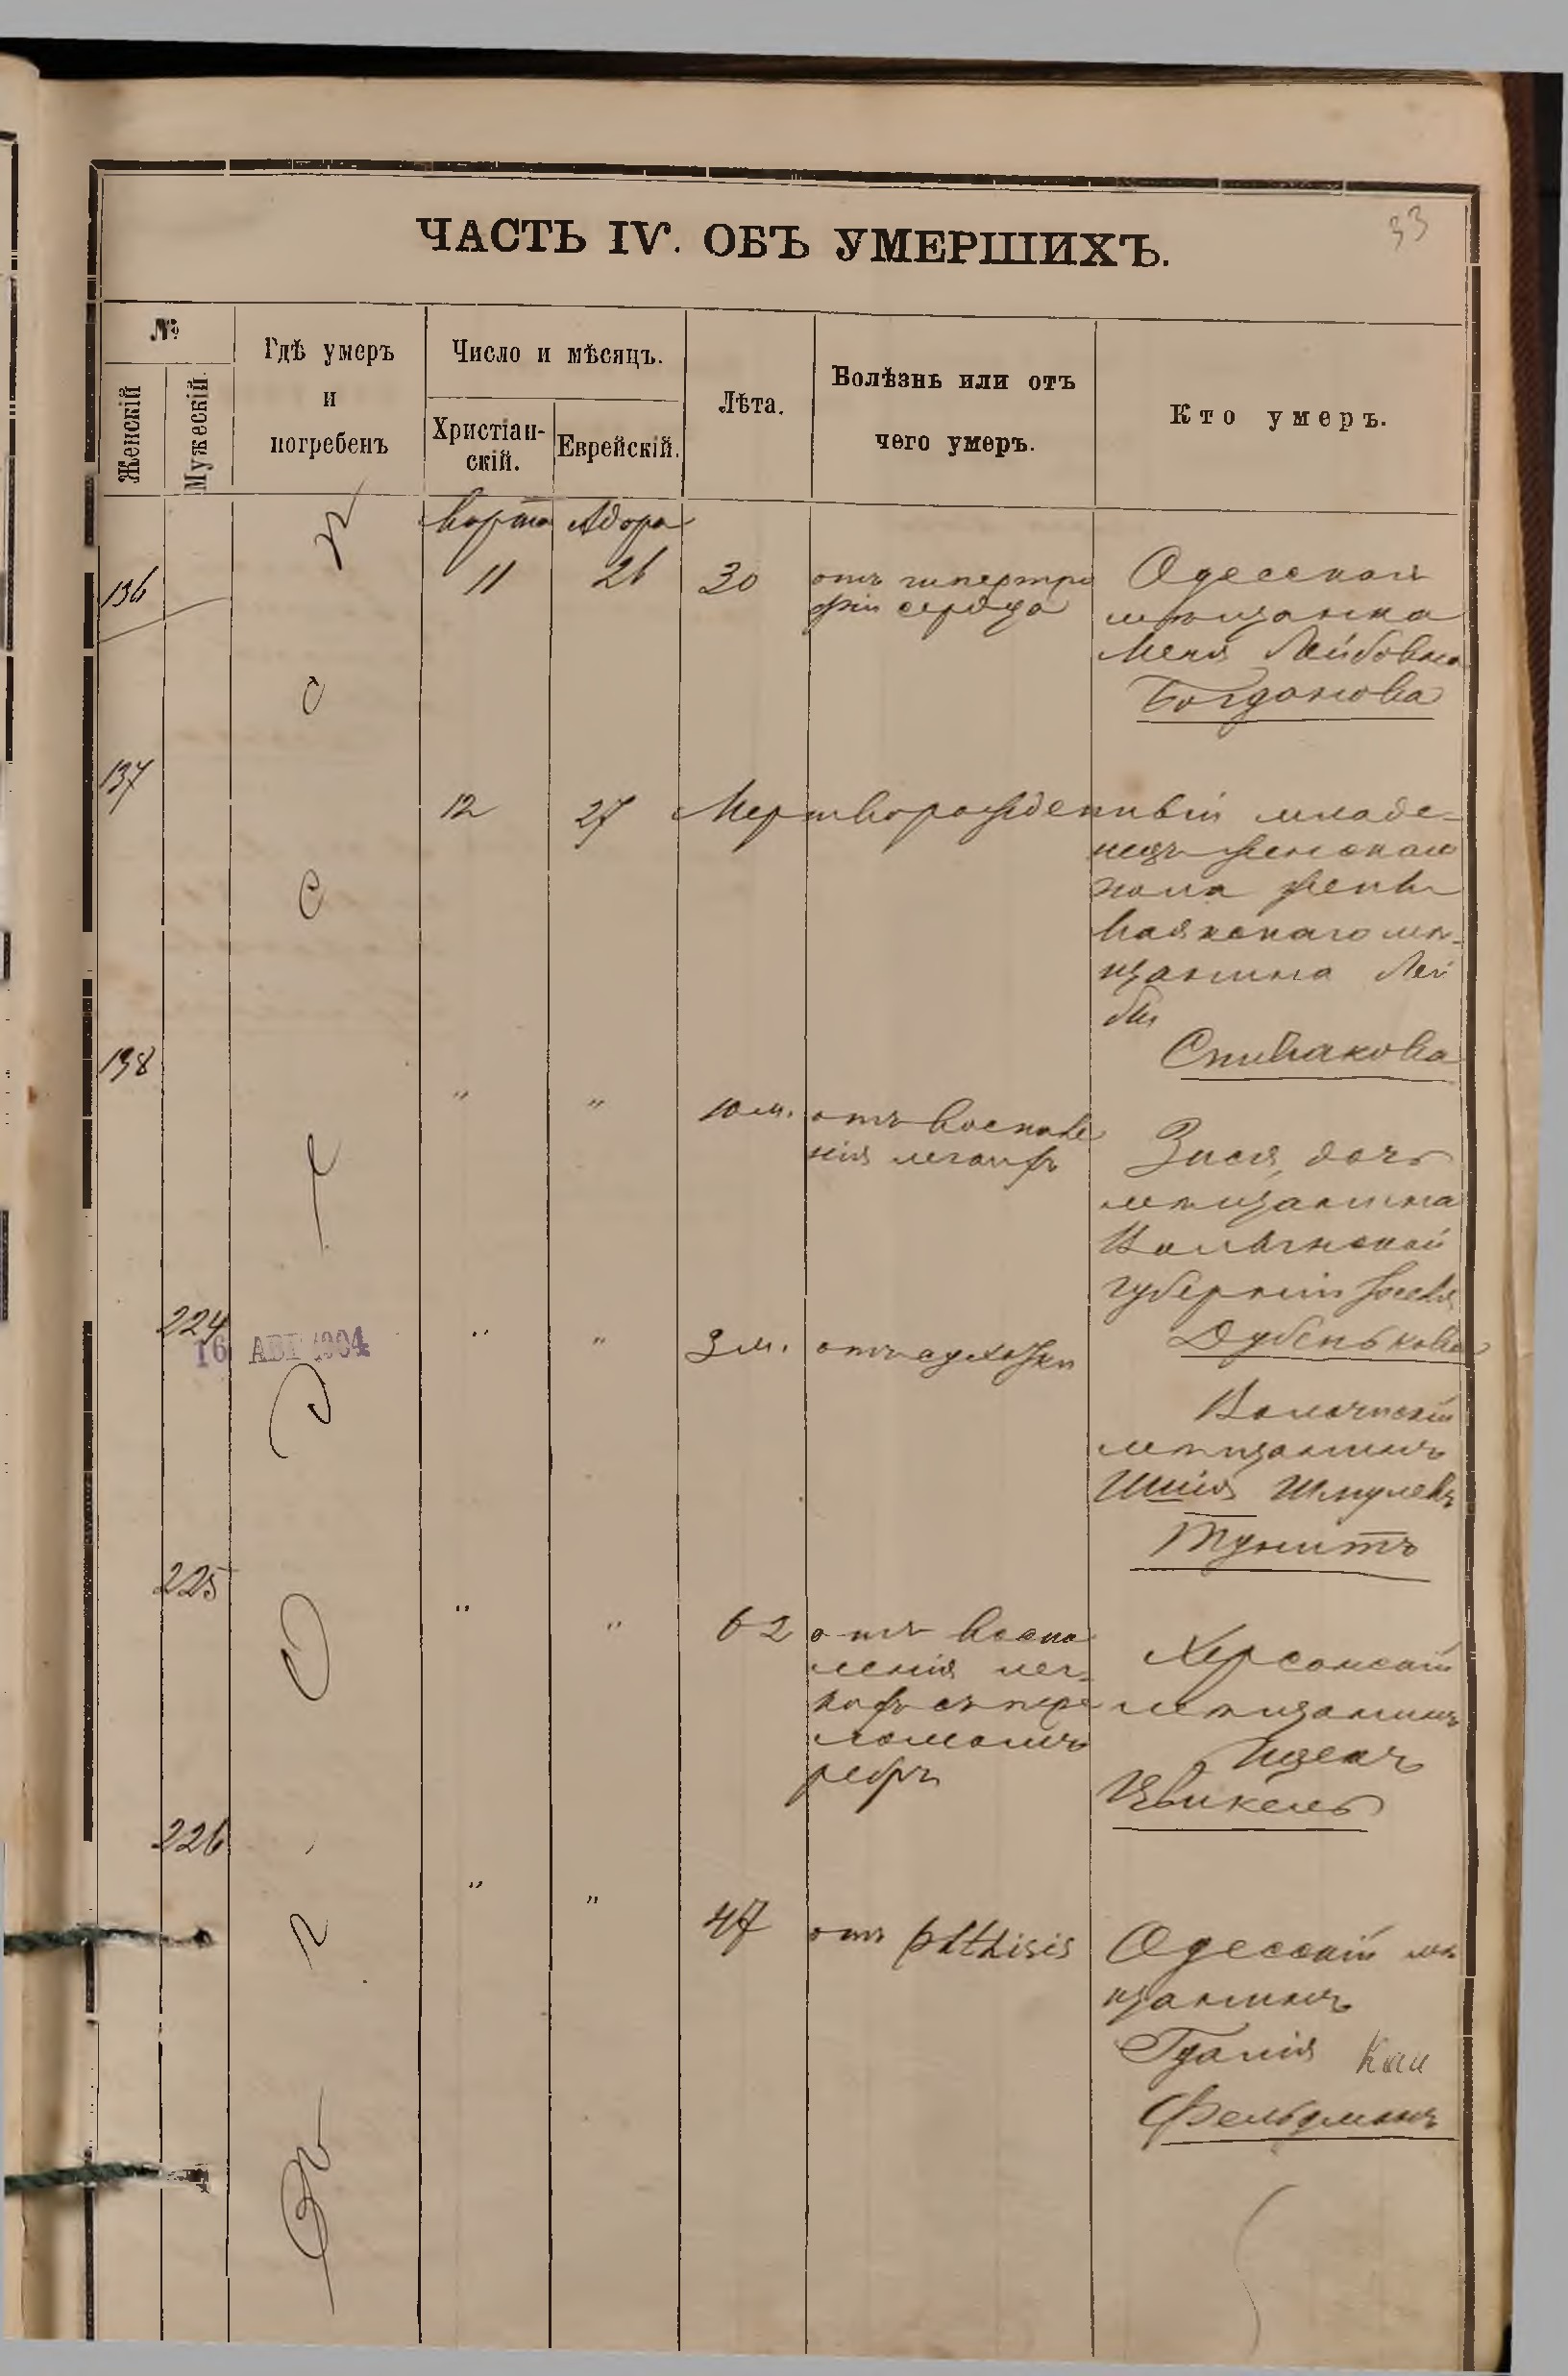 33
ЧАСТЬ IV. ОБЪ УМЕРШИХЪ.
№
Женскій
Мужескій.
Гдѣ умеръ
и
погребенъ
Число и мѣсяцъ.
Христіан-
скій.
Еврейскій.
Лѣта.
Болѣзнь или отъ
чего умеръ.
Кто умеръ.
Марта Адора
136
11 26 30
отъ гипертро
фіи сердца
Одесская
мѣщанка
Меня Лейбовна
Богданова
137
12 27 Мертворожденный младе-
нецъ женскаго
пола
мѣ-
щанина Лей
бы
Спивакова
138
" " 10 м.
отъ воспале
нія легкихъ
Зися, дочь
мѣщанина
Волынской
губерніи
Дубенькова
224
16 АВГ 1904
" " 3 м. отъ сухотки
мѣщанинъ
Шмулевъ
Тунитъ
225
" " 62
отъ воспа
ленія лег-
кихъ съ пере
ломомъ
ребръ
Херсонскій
мѣщанинъ
Ицекъ
Цвикель
226
" " 47 отъ phthisis
Одесскій мѣ
щанинъ
Фельдманъ
Въ г. Одессѣ